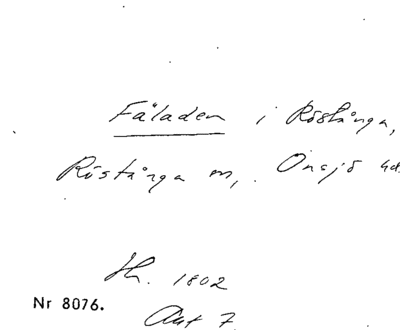 Fäladen i Röstånga,
Röstånga sn, Onsjö hd.
Hr. 1802
Nr 8076.
Akt 7